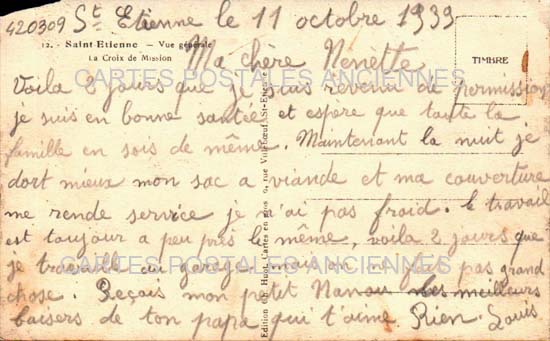 420309
St Etienne le 11 octobre 1939
12. - Saint-Etienne - Vue générale
La Croix de Mission
TIMBRE
CARTES POSTALES ANCIENNES
Ma chère Nénette
Voila 2 jours que je suis revenu de permission
je suis en bonne santée et espère que toute la
famille en sois de même. Maintenant la nuit je
dort mieux mon sac a viande et ma couverture
me rende service je n'ai pas froid. le travail
est toujour a peu près le même, voila 2 jours que
je travaille au garage mais on n'y fais pas grand
chose. Reçois mon petit Nanou les meilleurs
baisers de ton papa qui t'aime Rien. Louis
CARTES POSTALES ANCIENNES
Edition Ch. Huot, Cartes en gros 9, rue St-Etienne